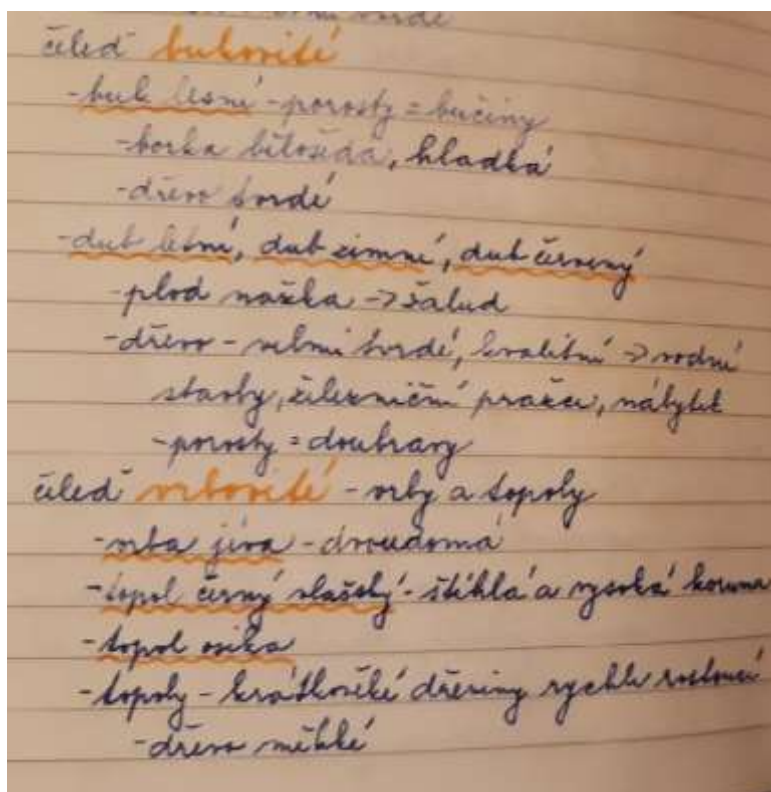 tvrdé
čeleď bukovité
-buk lesní - porosty = bučiny
-borka bělošedá, hladká
-dřevo tvrdé
-dub letní, dub zimní, dub červený
-plod nažka -> žalud
-dřevo - velmi tvrdé, kvalitní -> vodní
stavby, železniční pražce, nábytek
-porosty = doubravy
čeleď vrbovité - vrby a topoly
-vrba jíva - dvoudomá
-topol černý vlašský - štíhlá a vysoká koruna
-topol osika
-topoly - krátkověké dřeviny rychle rostoucí
-dřevo měkké